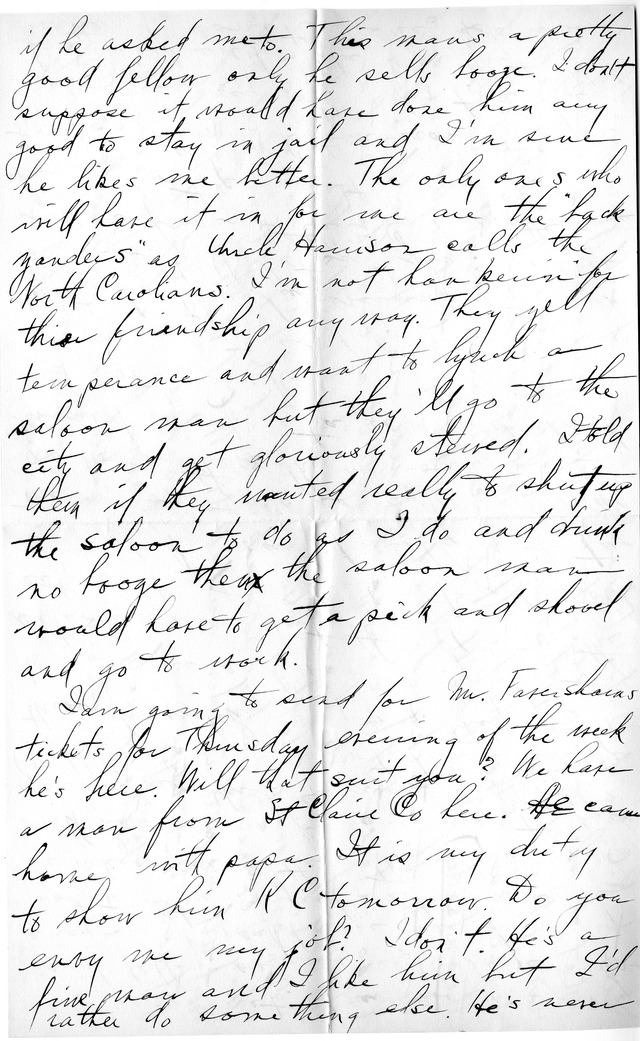 if he asked me to. This mans a pretty
good fellow only he sells booge. I don't
suppose it would have done him any
good to stay in jail and I'm sure
he likes me better. The only ones who
will have it in for me are the "back
yanders" as Uncle Harrison calls the
North Carolians. I'm not hankerin' for
thier friendship any way. They yell
temperance and want to lynch a
saloon man but they'll go to the
city and get gloriously stewed. I told
them if they wanted really to shut up
the saloon to do as I do and drink
no booge then the saloon man
would have to get a pick and shovel
and go to work.
I am going to send for Mr. Favershams
tickets for Thursday evening of the week
he's here. Will that suit you? We have
a man from St Claire Co here. He came
home with papa. It is my duty
to show him K C tomorrow. Do you
envy me my job? I don't. He's a
fine man and I like him but I'd
rather do something else. He's never